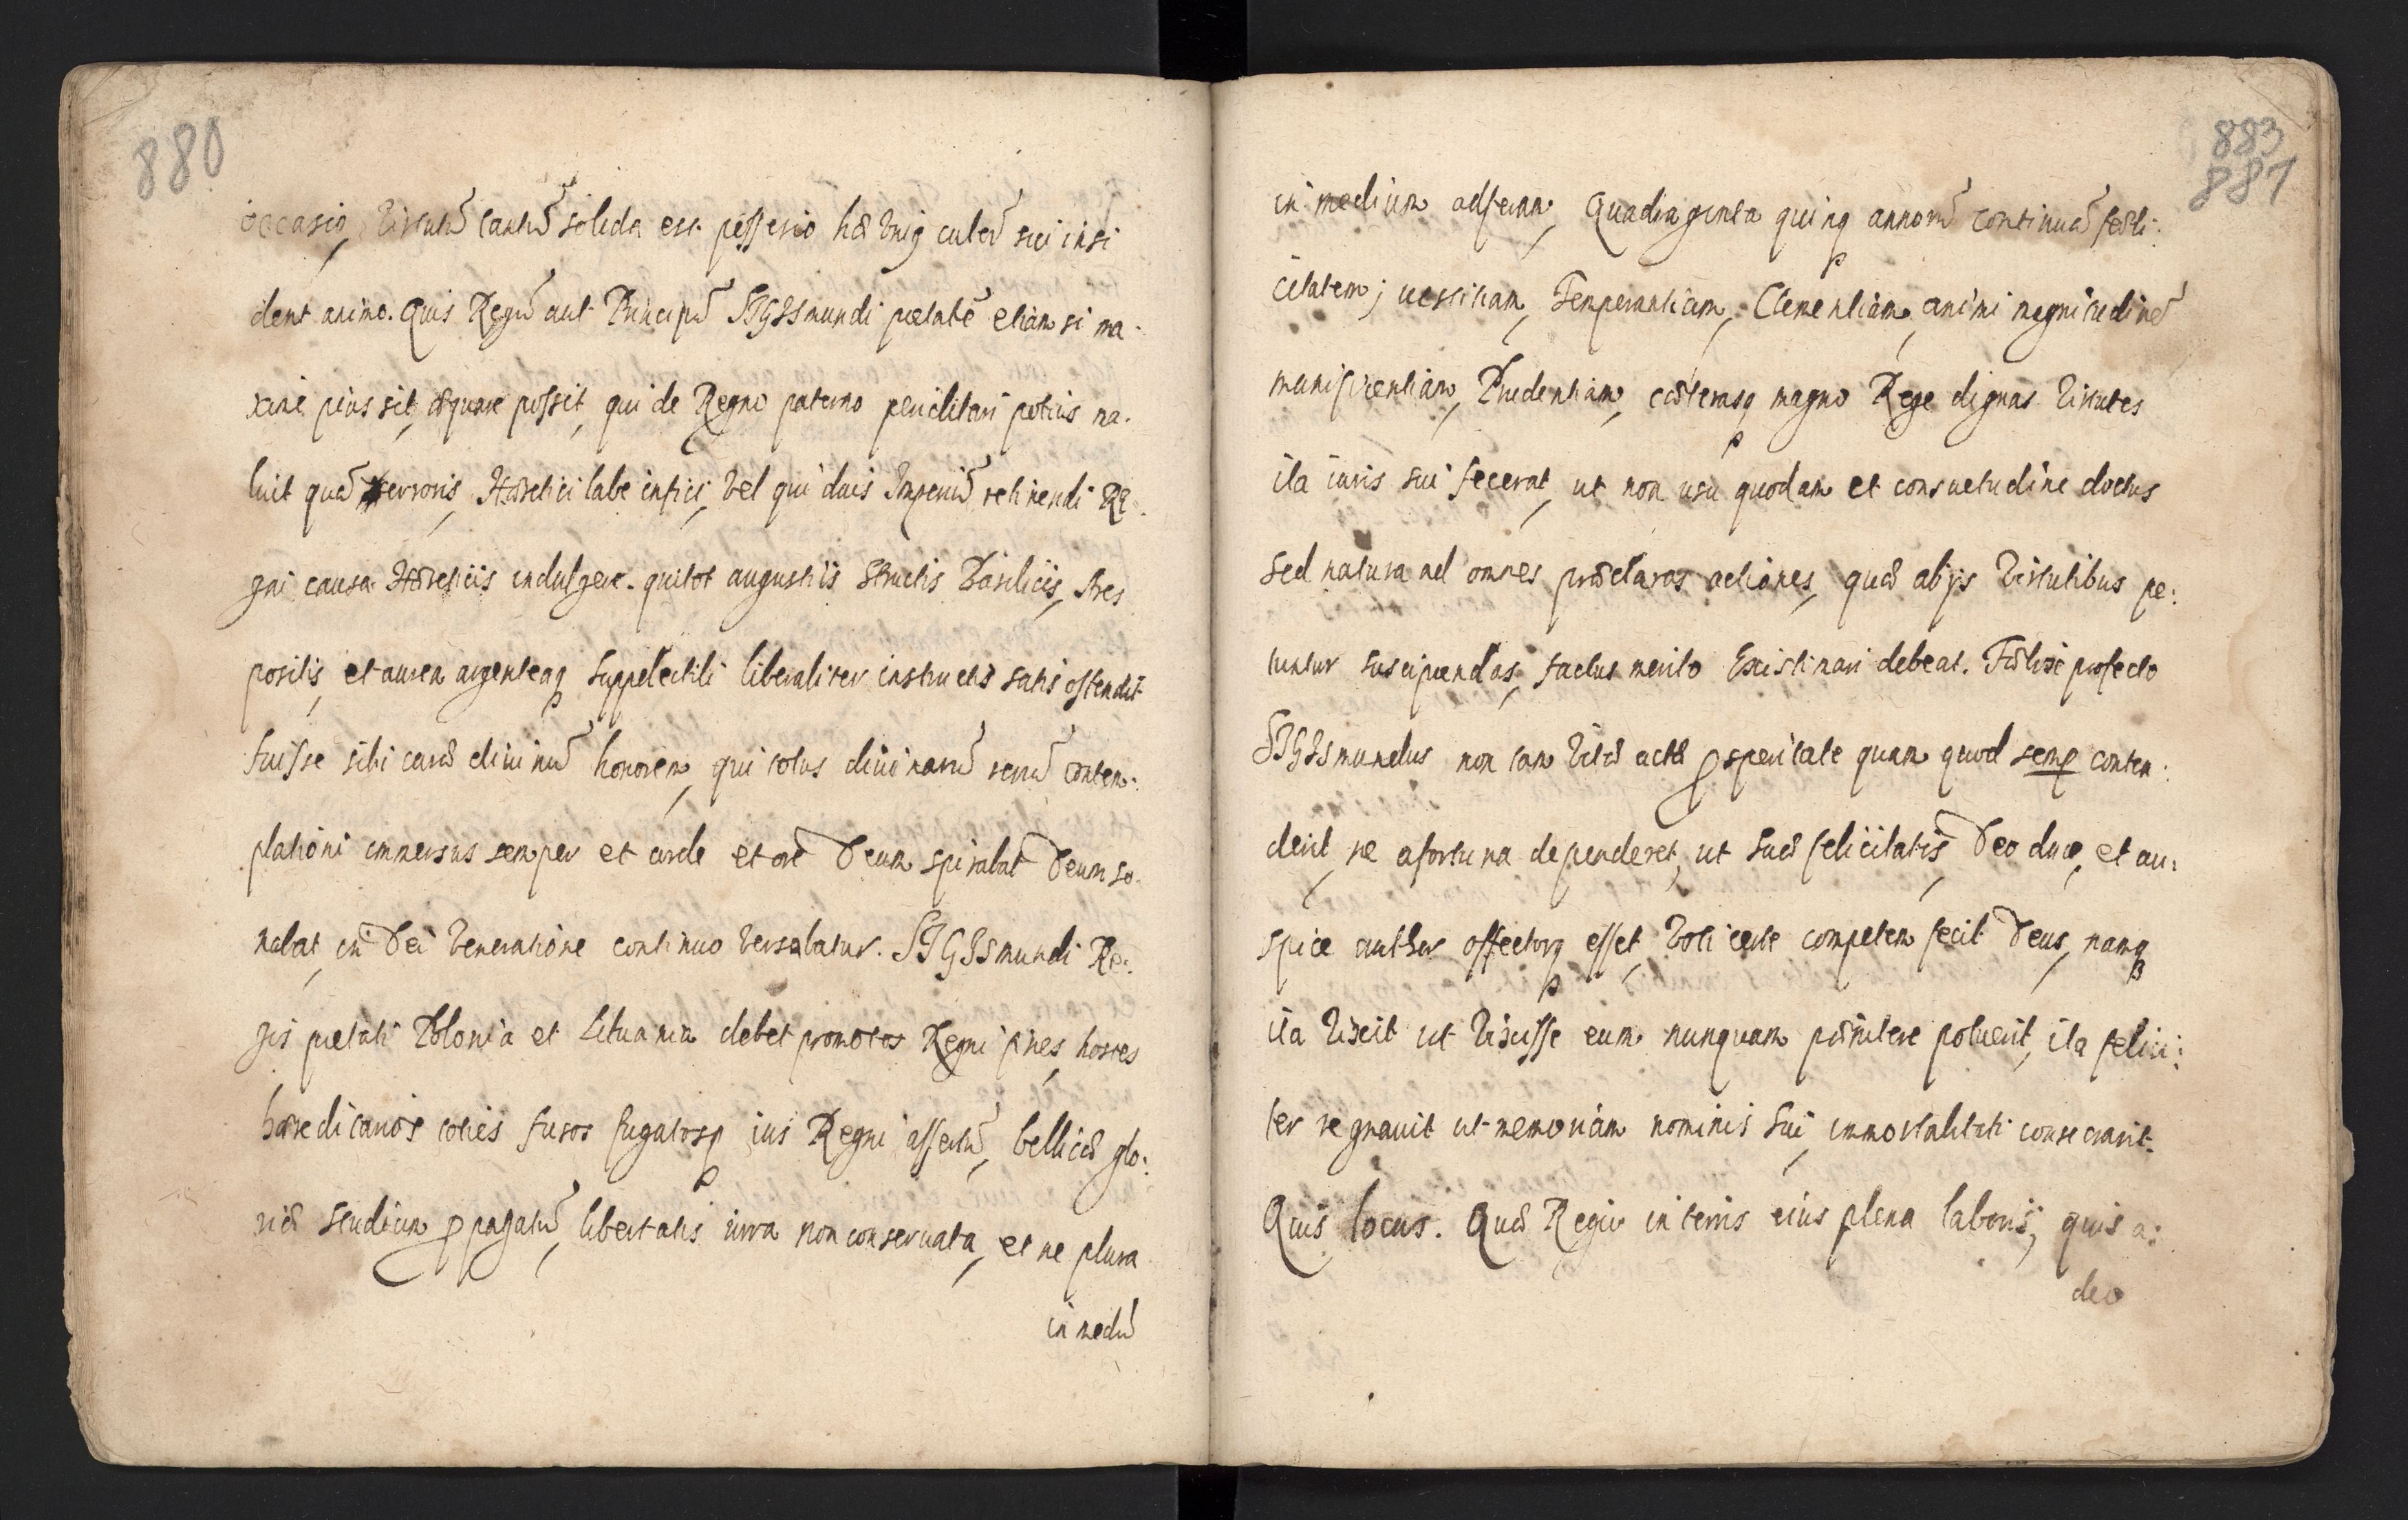 880
occasio, Virtutū tantū solida est possessio hæ Vnig cultū sui insi
dent animo. Quis Regū aut Principū SIGISmundi pietatē etiam si ma-
xime pius sit, æquare possit, qui de Regno paterno periclitari potius ma-
luit quā erroris, Hæretici labe infici, Vel qui duis Imperiū retinendi Re-
gni causa Hæreticis indulgere. qui tot augustiis structis Basilicis, Ares
positis, et aurea argenteaq suppelectili liberaliter instructis satis ostendit
fuisse sibi caræ diuinū honorem, qui totus diuinarū rerū contem-
plationi immersus semper et corde et ore Deum spirabat Deum so-
nabat, in Dei Veneratione continuo Versabatur. SIGISmundi Re:
gis pietati Polonia et Lituania debet promotos Regni fines, hostes
hæreditarios toties fusos fugatosq ius Regni assertū, bellicæ glo:
riæ studium ꝓpagatū, libertatis iura non conseruata, et ne plura
in mediū
883
881
in medium adferam, Quadraginta quinq annorū continuā fæli:
citatem; iustitiam, Temperantiam, Clementiam, animi magnitudinē
munificentiam, Prudentiam, cæterasq magno Rege dignas Virtutes
ita iuris sui fecerat, ut non usu quodam et consuetudine doctus
sed natura ad omnes præclaras actiones, quæ abijs Virtutibus pe:
tuntur suscipiendas, factus merito Existimari debeat. Fælix profecto
SIGISmundus non tam Vitæ actæ ꝓsperitate quam quod semp conten:
derit, ne afortuna dependeret, ut suæ felicitatis, Deo duce, et au:
spice author effectorq esset, Voti certe competem fecit Deus, namq
ita Vixit ut Vixisse eum nunquam pœnitere potuerit, ita felici:
ter regnauit ut memoriam nominis sui, immortalitati consecrarit.
Quis locus. Quæ Regio in terris eius plena laboris; quis a:
deo